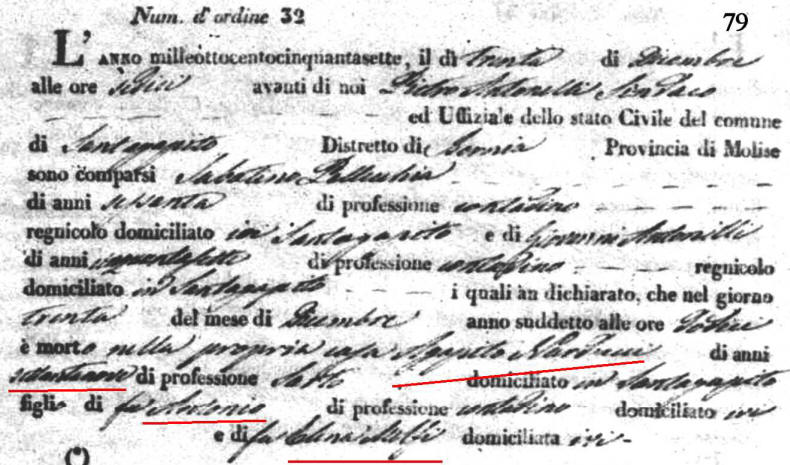 Num. d'ordine 32
79
L'ANNO milleottocentocinquantasette, il dì trenta di Dicembre
alle ore sedici avanti di noi Pietro Antonelli Sindaco
ed Uffiziale dello stato Civile del comune
di Santagapito Distretto di Isernia Provincia di Molise
sono comparsi Sabatino
di anni sessanta di professione contadino
regnicolo domiciliato in Santagapito e di Giovanni Antonelli
di anni di professione contadino regnicolo
domiciliato in Santagapito i quali àn dichiarato, che nel giorno
trenta del mese di Dicembre anno suddetto alle ore dodici
è morto nella propria casa Agapito Narducci di anni
di professione Sarto domiciliato in Santagapito
figlio di fu Antonio di professione contadino domiciliato ivi
e di fu Elena Melfi domiciliata ivi -
(*)